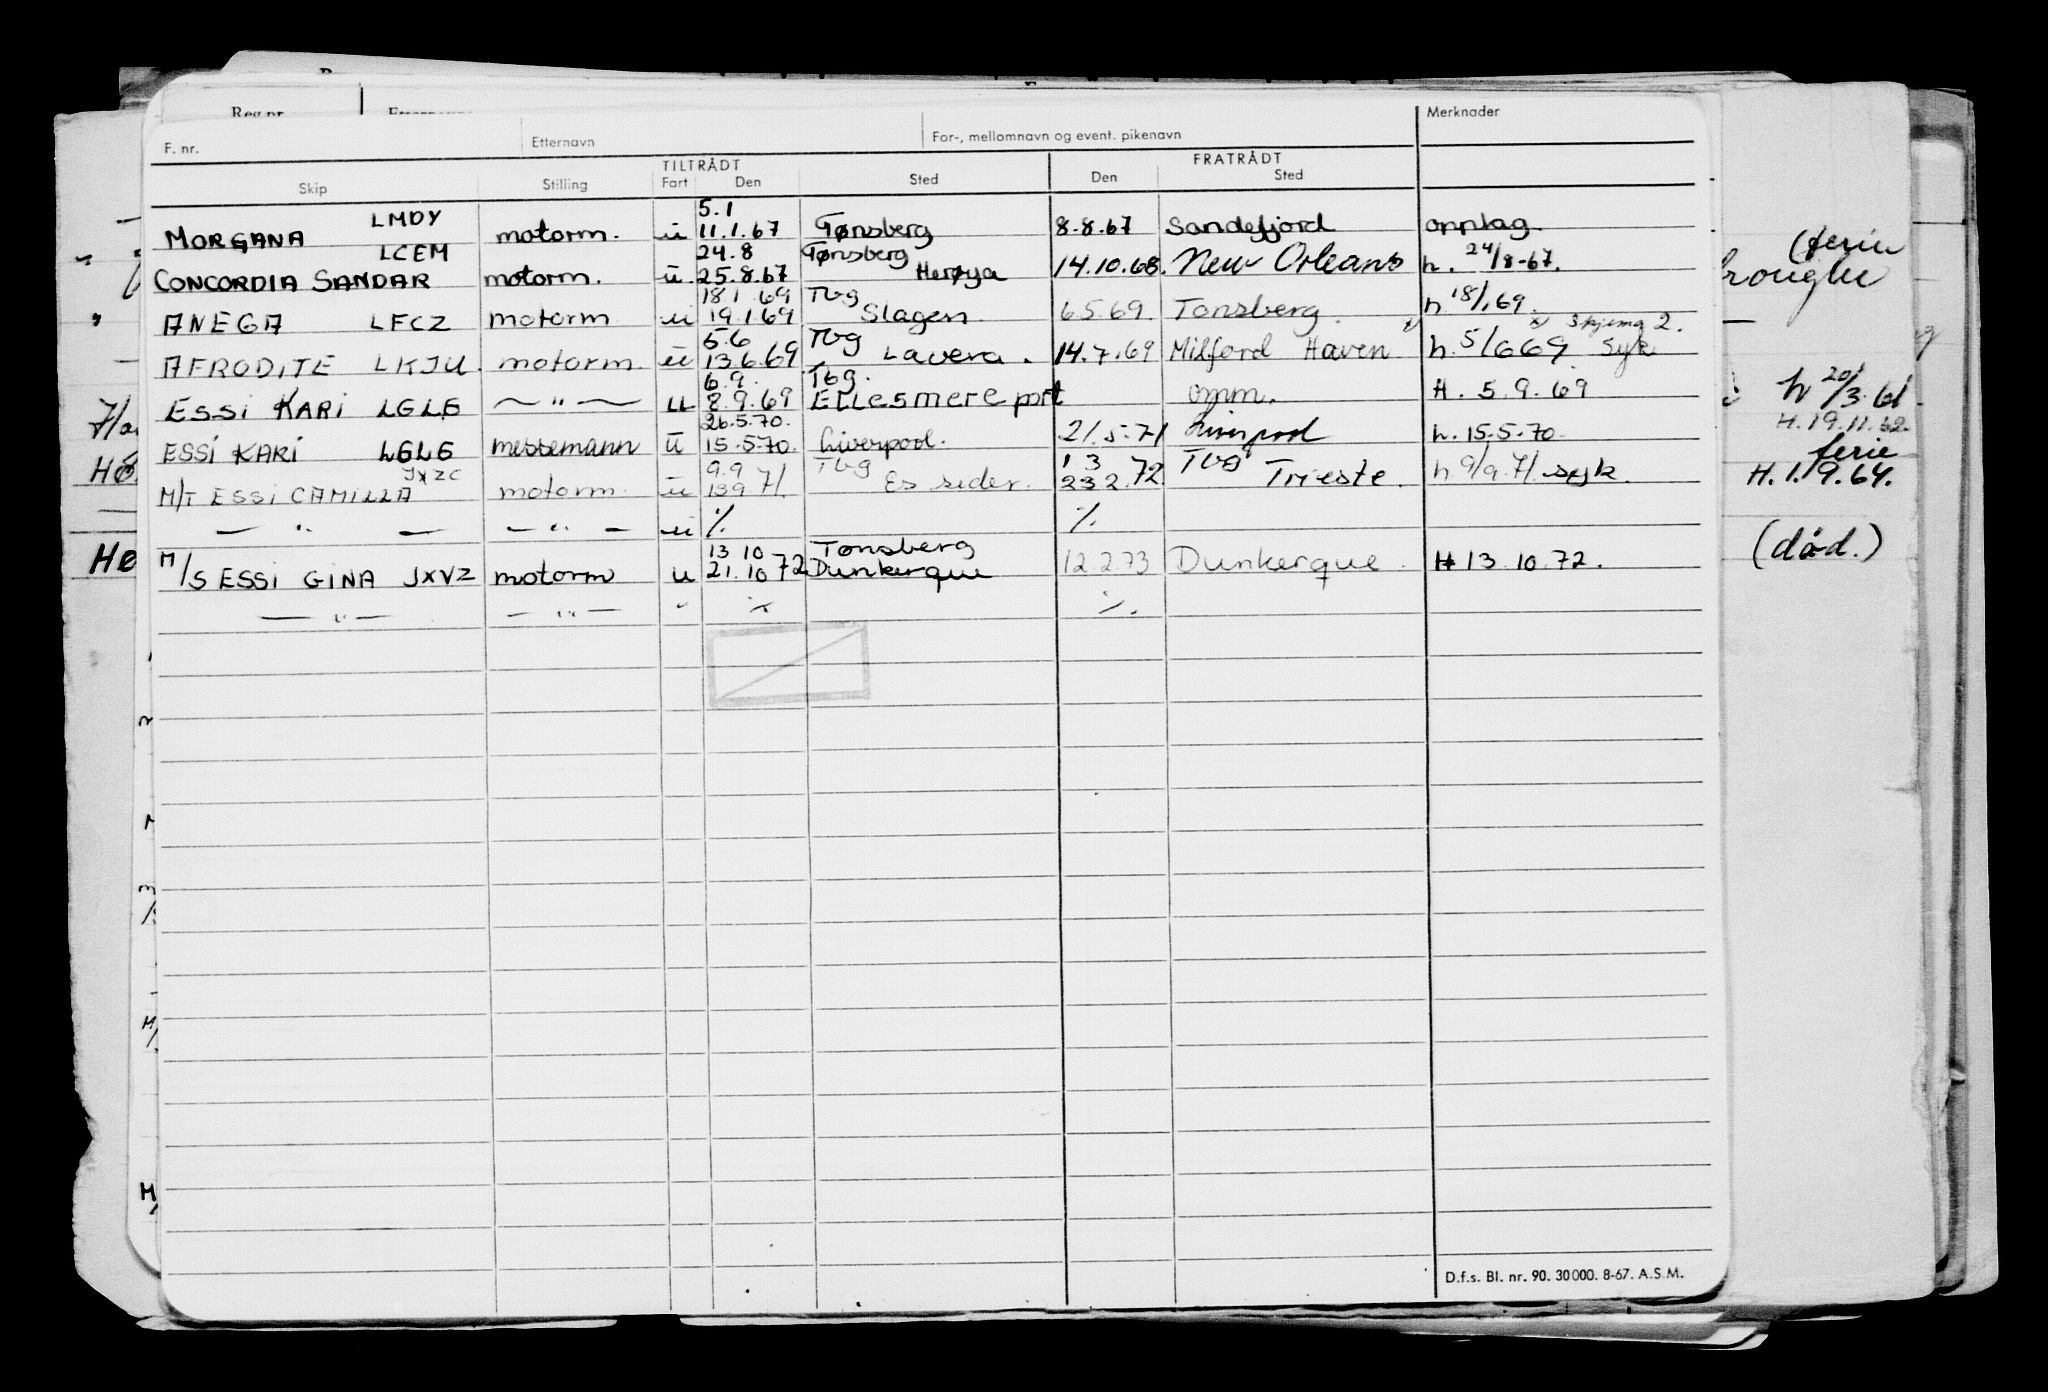 F. nr. Etternavn For-, mellomnavn og event. pikenavn Merknader
TILTRÅDT FRATRÅDT
Skip Stilling Fart Den Sted Den Sted
5.1
MORGANA LMDY motorm. u 11.1.67 Tønsberg 8.8.67 Sandefjord opplag.
24.8 Tønsberg
CONCORDIA SANDAR LCEM motorm. u. 25.8.67 Herøya 14.10.68. New Orleans h. 24/8-67.
18.1 69 Tbg
ANEGA LFCZ motorm u 19.1.69 Slagen 6.5.69. Tønsberg. h 18/1.69.
5.6 Tbg x skjema 2.
AFRODITE LKJU. motorm. u 13.6.69 Lavera. 14.7.69 Milford Haven x h. 5/6 69 syk
6.9. Tbg.
ESSI KARI LGLG — " — u 8.9.69 Ellesmere port omm. H. 5.9.69
26.5.70.
ESSI KARI LGLG messemann u 15.5.70. Liverpool. 21.5.71 Liverpool h. 15.5.70
9.9 Tbg 1 3 Tbg
M/T ESSI CAMILLA JXZC motorm. u 13 9 71. Es sider. 23 2.72. Trieste. h 9/9.71 syk.
— " — — " — u ./. ./.
13 10 Tønsberg
M/S ESSI GINA JXVZ motorm u 21.10 72 Dunkerque 12.2.73 Dunkerque. H 13.10.72.
— " — — " — " ./. ./.
D.f.s. Bl. nr. 90. 30000. 8-67. A.S.M.
(ferie
h 20/3.61
H.19.11.62.
ferie
H.1.9.64.
(død.)